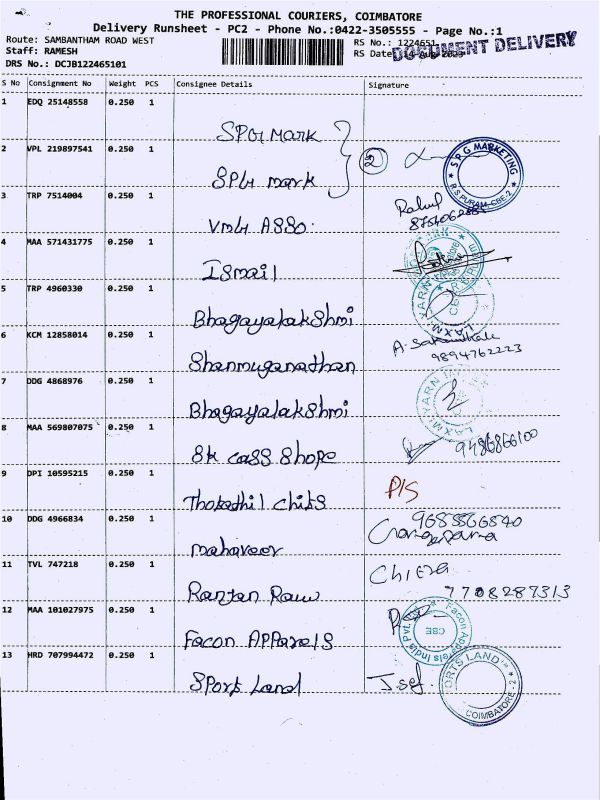 THE PROFESSIONAL COURIERS, COIMBATORE
Delivery Runsheet - PC2 - Phone No.:0422-3505555 - Page No.:1
Route: SAMBANTHAM ROAD WEST
RS No.: 1224651
DOCUMENT DELIVERY
Staff: RAMESH
RS Date: 14-Aug-2023
DRS No.: DCJB122465101
S No Consignment No Weight PCS Consignee Details Signature
1 EDQ 25148558 0.250 1
SPG MARK
S R G MARKETING
R.S.PURAM-CBE-2
2 VPL 219897541 0.250 1
2
SPG mark
3 TRP 7514004 0.250 1
Rahul
VMG ASSO.
4 MAA 571431775 0.250 1
Ismail
5 TRP 4960330 0.250 1
LAXMI YARN
Bhagayalakshmi
6 KCM 12858014 0.250 1
9894762223
Shanmuganathan
7 DDG 4868976 0.250 1
LAXMI YARN
Bhagayalakshmi
8 MAA 569807075 0.250 1
9486866100
SK cass shope
9 DPI 10595215 0.250 1
P/S
Thokathil chits
10 DDG 4966834 0.250 1
9685566840
mahaveer
11 TVL 747218 0.250 1
7708287313
Ranjan Raw
12 MAA 101027975 0.250 1
Facon Apparels India Pvt.
CBE
Facon APParels
13 HRD 707994472 0.250 1
SPORTS LAND
COIMBATORE-2
Sports Land